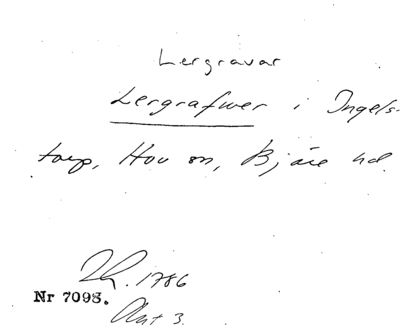 Lergravar
Lergrafwer i Ingels-
torp, Hov sn, Bjäre hd.
1786
Nr 7098.
Akt 3.